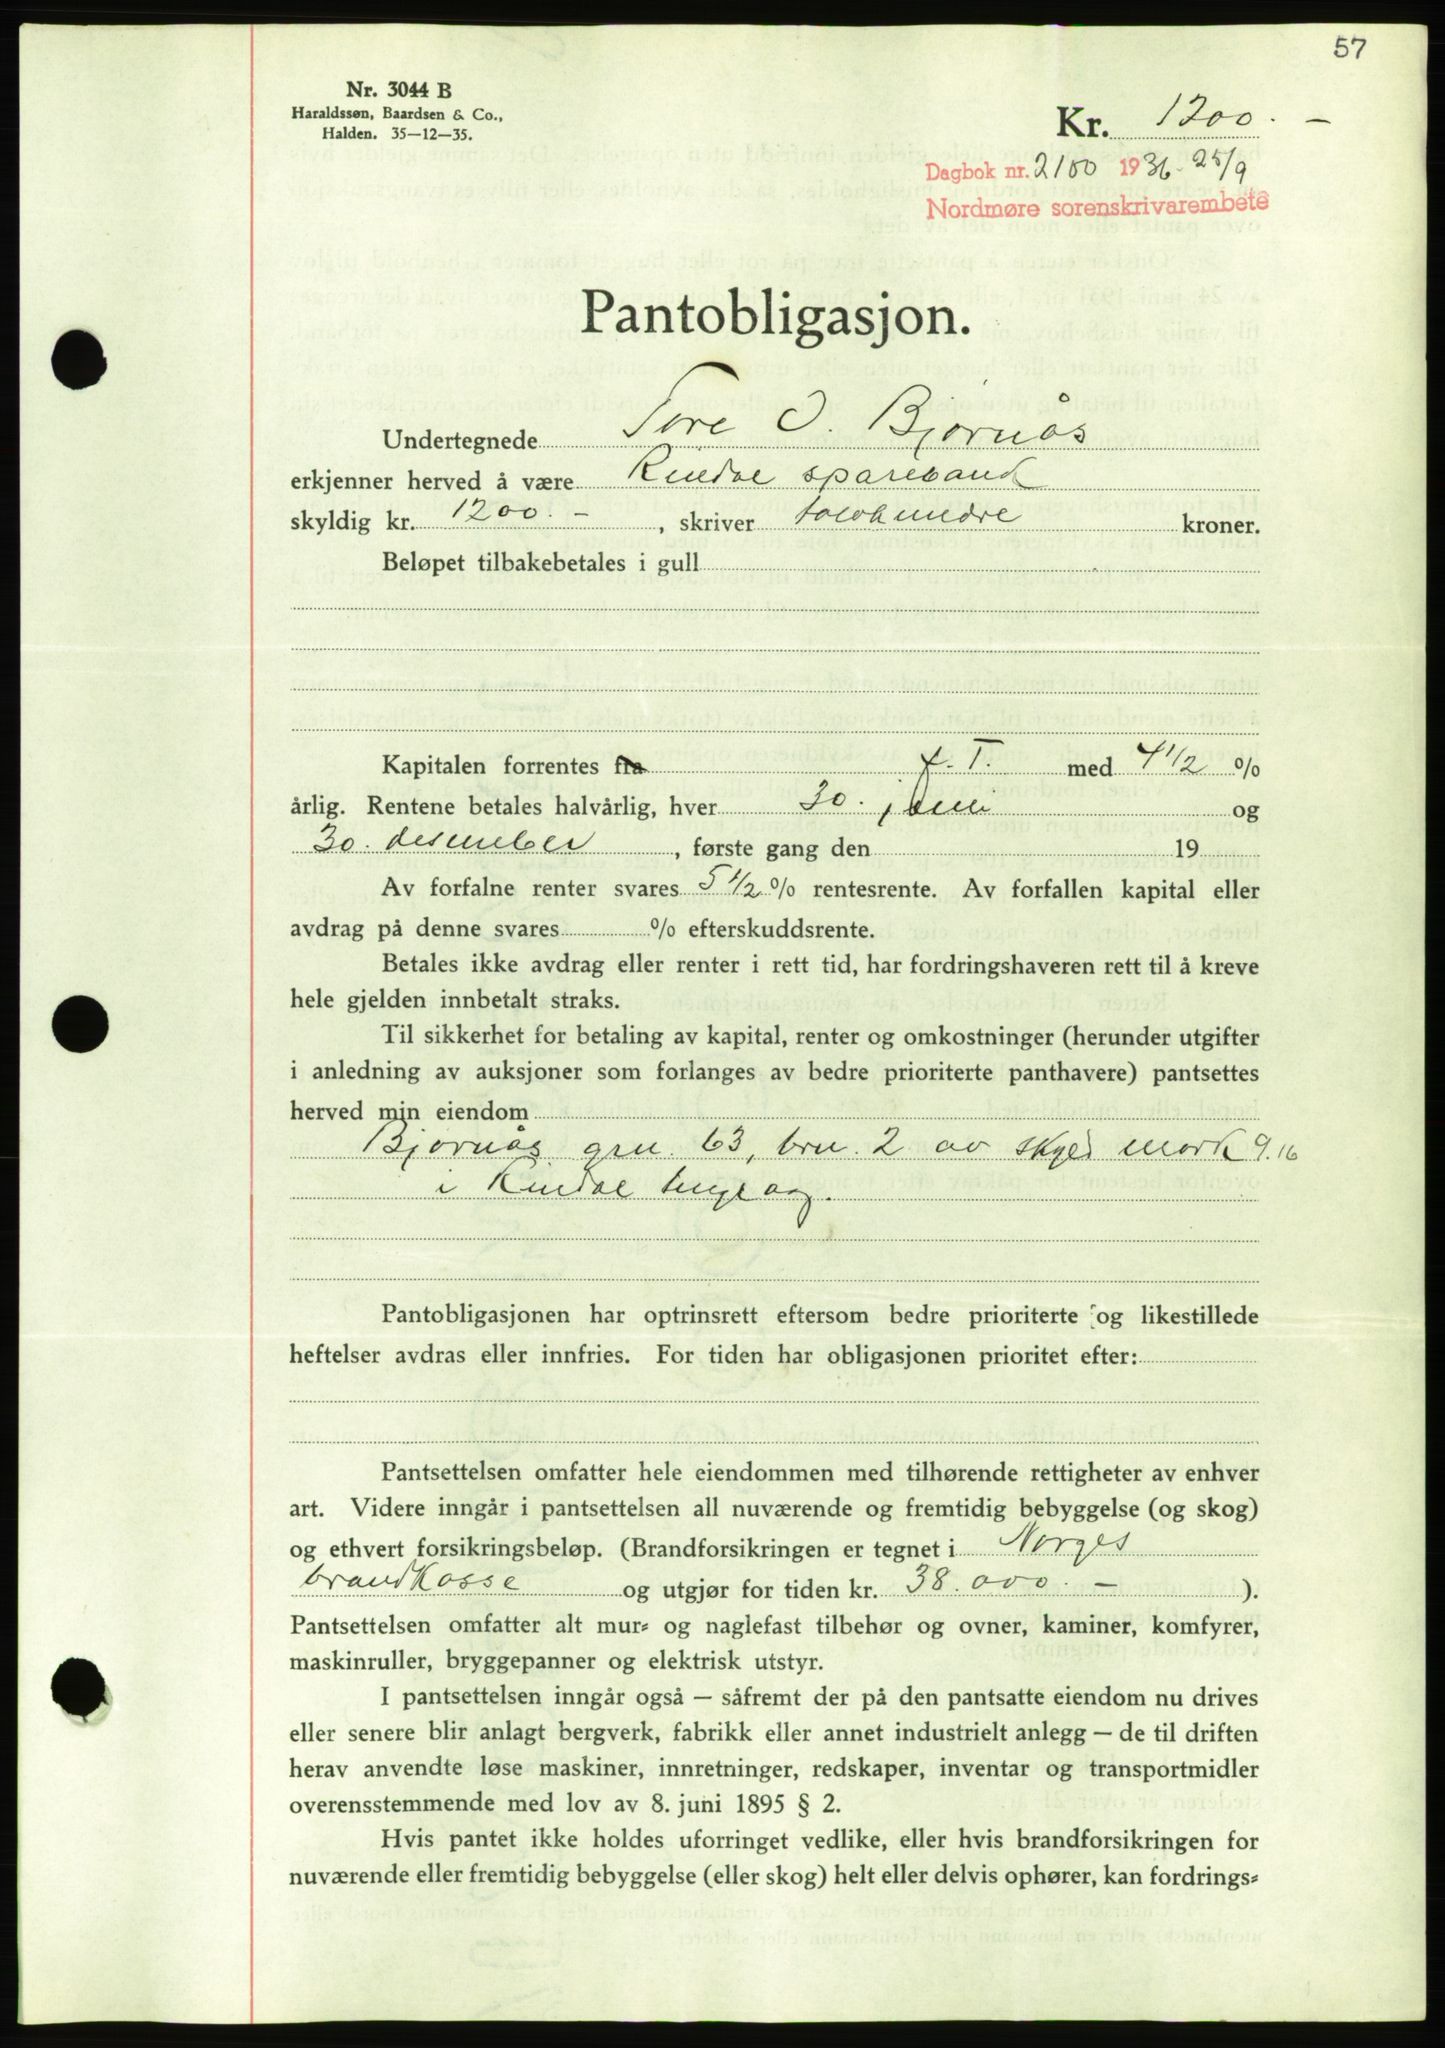 57
Nr. 3044 B
Haraldssøn, Baardsen & Co.,
Halden. 35—12—35.
Kr. 1200.—
Dagbok nr. 2100 1936 - 25/9
Nordmøre sorenskrivarembete
Pantobligasjon.
Undertegnede Tore O. Bjørnås
erkjenner herved å være Rindal sparebank
skyldig kr. 1200.—, skriver tolvhundre kroner.
Beløpet tilbakebetales i gull
Kapitalen forrentes fra f. T. med 4 1/2 %
årlig. Rentene betales halvårlig, hver 30. juni og
30. desember, første gang den 19
Av forfalne renter svares 5 1/2 % rentesrente. Av forfallen kapital eller
avdrag på denne svares % efterskuddsrente.
Betales ikke avdrag eller renter i rett tid, har fordringshaveren rett til å kreve
hele gjelden innbetalt straks.
Til sikkerhet for betaling av kapital, renter og omkostninger (herunder utgifter
i anledning av auksjoner som forlanges av bedre prioriterte panthavere) pantsettes
herved min eiendom
Bjørnås grn. 63, brn. 2 av skyld mark 9.16
i Rindal tinglag.
Pantobligasjonen har optrinsrett eftersom bedre prioriterte og likestillede
heftelser avdras eller innfries. For tiden har obligasjonen prioritet efter:
Pantsettelsen omfatter hele eiendommen med tilhørende rettigheter av enhver
art. Videre inngår i pantsettelsen all nuværende og fremtidig bebyggelse (og skog)
og ethvert forsikringsbeløp. (Brandforsikringen er tegnet i Norges
brandkasse og utgjør for tiden kr. 38.000.— ).
Pantsettelsen omfatter alt mur- og naglefast tilbehør og ovner, kaminer, komfyrer,
maskinruller, bryggepanner og elektrisk utstyr.
I pantsettelsen inngår også — såfremt der på den pantsatte eiendom nu drives
eller senere blir anlagt bergverk, fabrikk eller annet industrielt anlegg — de til driften
herav anvendte løse maskiner, innretninger, redskaper, inventar og transportmidler
overensstemmende med lov av 8. juni 1895 § 2.
Hvis pantet ikke holdes uforringet vedlike, eller hvis brandforsikringen for
nuværende eller fremtidig bebyggelse (eller skog) helt eller delvis ophører, kan fordrings-